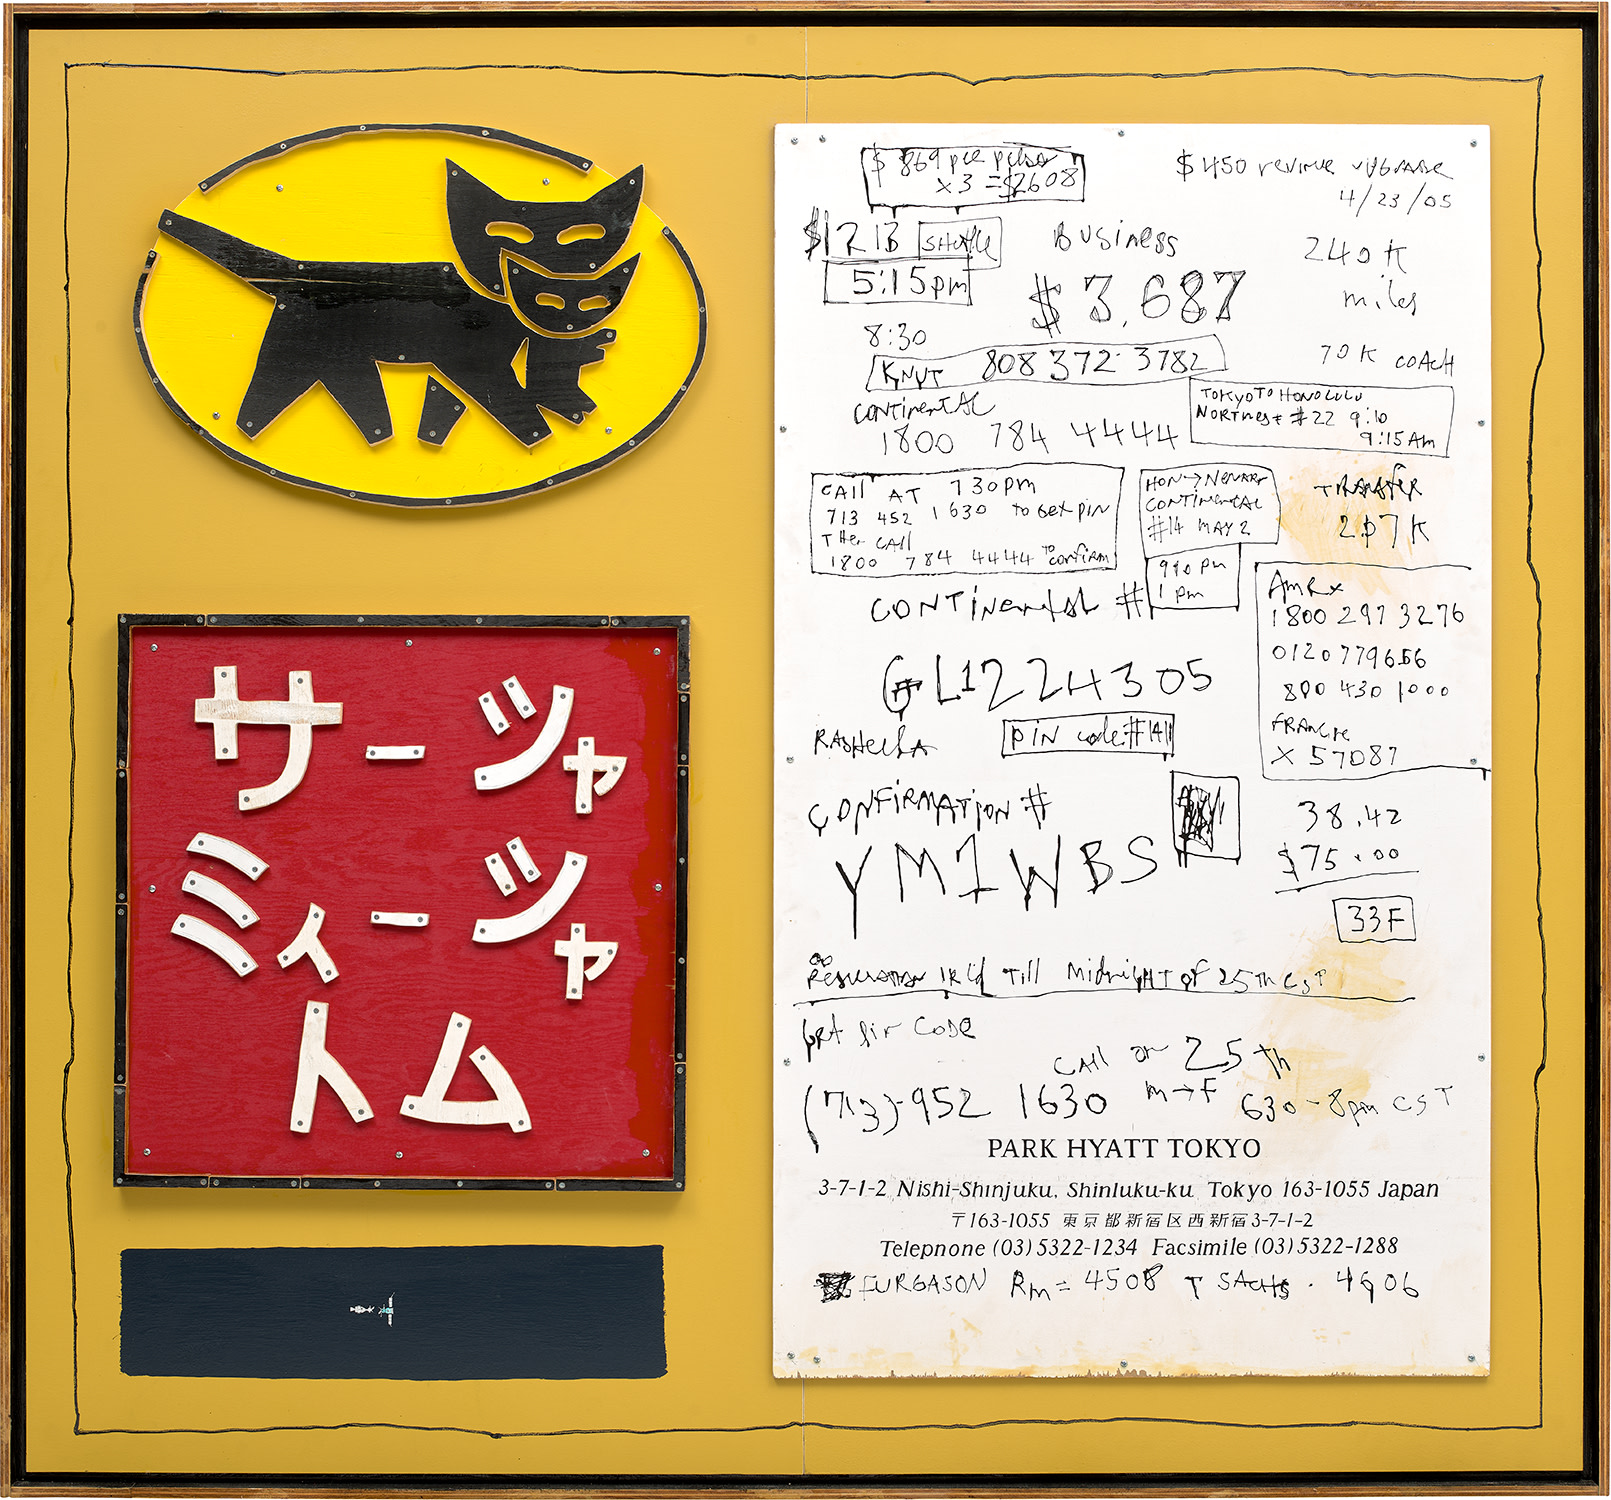 サーシャ
ミィーシャ
トム
$ 869 per person
x 3 = $2608
$ 450 revenue upgrade
4/23/05
$1213 SHUTTLE
5:15pm
Business
$ 3,687
240K
miles
8:30
KNUT 808 372-3782
70K COACH
CONTinenTAL
1800 784 4444
TOKYO TO HONOLULU
NORTHWEST #22 9:10
9:15 AM
CAll AT 730pm
713 452 1630 to Get pin
THen CAll
1800 784 4444 to confirm
HON → NEWARK
CONTinenTAL
#14 MAY 2
910 pm
1 pm
TRANSFER
207K
CONTinentAL #
GL1224305
AmRx
1800 297 3276
0120 779656
800 430 1000
FRANCIE
X 57087
RASHEEDA
PIN code #1411
CONFIRMATION #
YM1WBS
38.42
$75.00
33F
Reservation Held Till MidnigHT of 25Th CST
Get Pin CODE
CAll on 25th
(713)-952 1630 M→F 630-8pm CST
PARK HYATT TOKYO
3-7-1-2 Nishi-Shinjuku, Shinluku-ku Tokyo 163-1055 Japan
〒163-1055 東京都新宿区西新宿3-7-1-2
Telepnone (03) 5322-1234 Facsimile (03) 5322-1288
FURGASON Rm = 4508 T SACHS . 4606